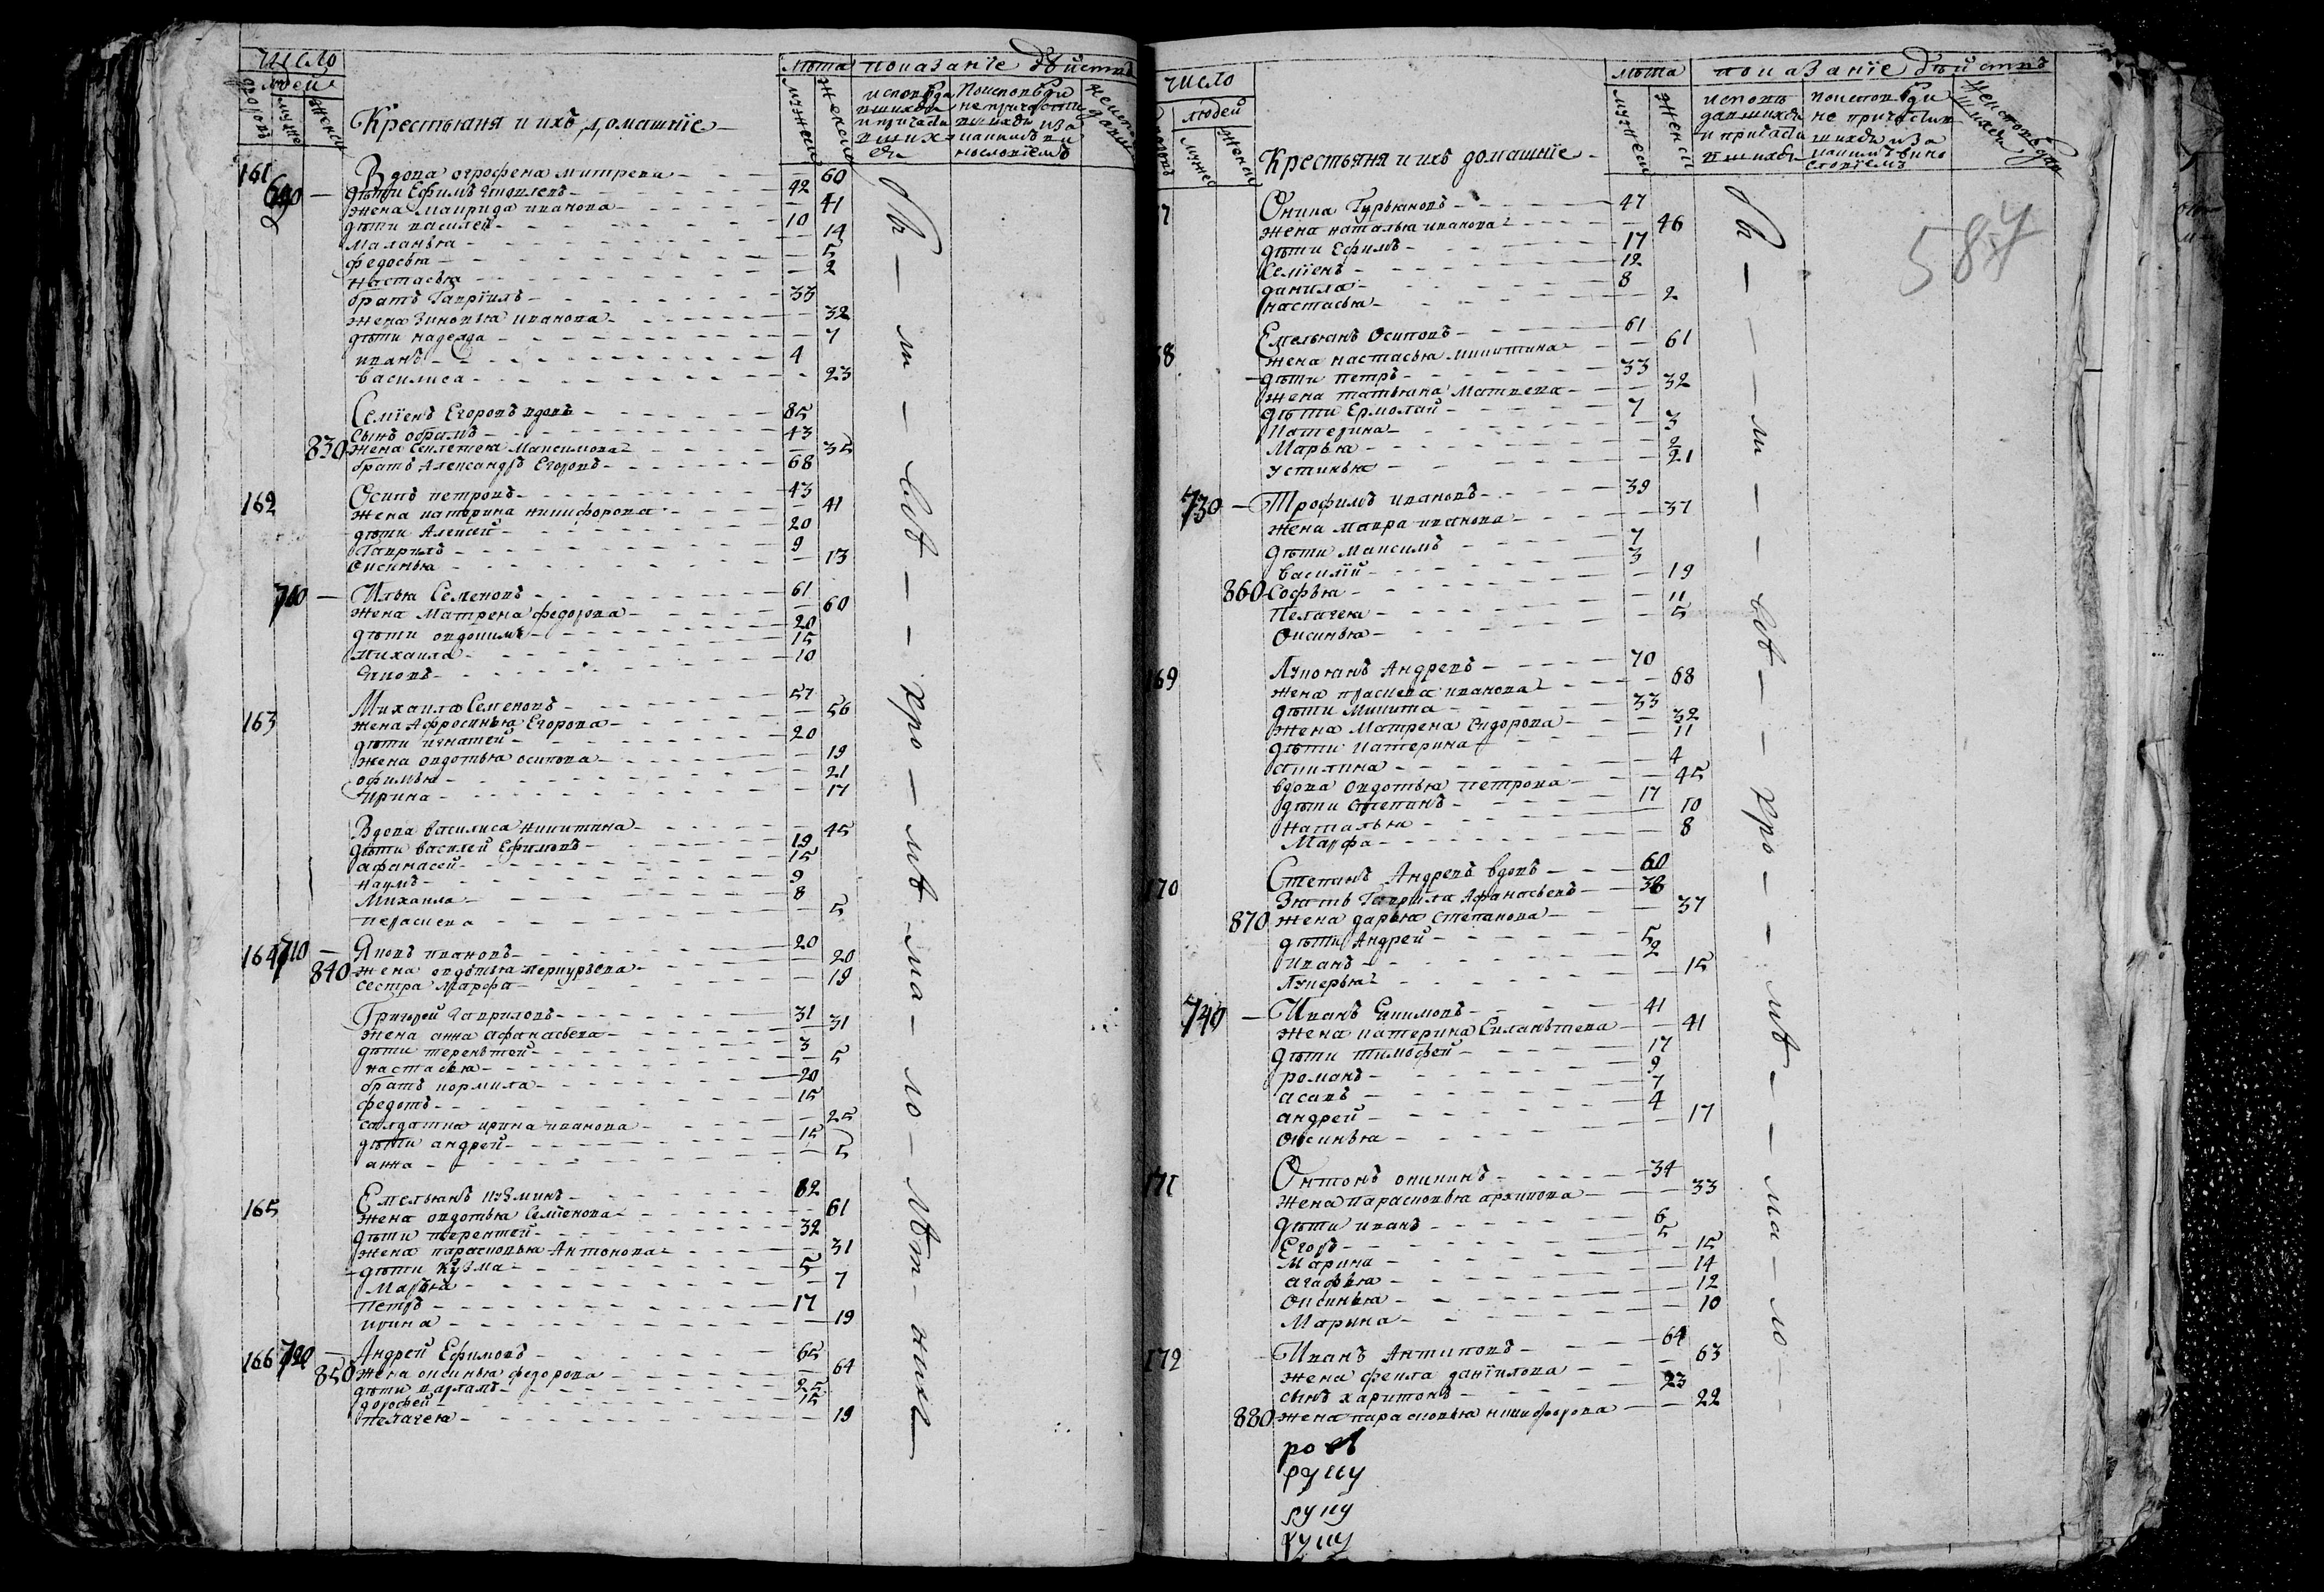 число
людей
дворовъ
мужес
женск
Крестьяня и ихъ домашнїе
лѣта
мужеск
женска
показанїе действъ
161 Вдова огрофена митрева 60
690 дѣти Ефимъ Яковлевъ 42
жена Маврида иванова 41
дѣти василей 10
Маланья 14
федосья 5
настасья 2
братъ Гаврїилъ 33
жена Зиновья иванова 32
дѣти надежда 7
иванъ 4
василиса 23
Семїенъ Егоровъ вдовъ 85
сынъ обрамъ 43
830 жена Секлетея Максимова 35
братъ Александръ Егоровъ 68
162 Осипъ петровъ 43
жена катерина никифорова 41
дѣти Алексей 20
Гаврилъ 9
оксинья 13
700 Илья Семеновъ 61
жена Матрена федорова 60
дѣти овдокимъ 20
михаила 15
Яковъ 10
163 Михаила Семеновъ 57
жена Афросинья Егорова 56
дѣти игнатей 20
жена овдотья осипова 19
офимья 21
Ирина 17
Вдова василиса никитина 45
дѣти василей Ефимовъ 19
афанасей 15
наумъ 9
Михаила 8
перасцева 5
164 710 Яковъ ивановъ 20
840 жена овдотья меркурьева 20
сестра марфа 19
Григорей Гавриловъ 31
жена анна афанасьева 31
дѣти терентей 3
настасья 5
братъ кормила 20
федотъ 15
салдатка ирина иванова 25
дѣти андрей 15
анна 5
165 Емельянъ кузминъ 62
жена овдотья Семїенова 61
дѣти терентей 32
жена парасковья Антонова 31
дѣти Кузма 5
Марья 7
петръ 17
ирина 19
166 720 Андрей Ефимовъ 65
850 жена оксинья федорова 64
дѣти варламъ 25
дорофей 15
пелагея 19
число
людей
мужес
женск
Крестьяня и ихъ домашнїе
лѣта
мужеск
женск
показанїе действъ
584
7 Оника Гурьяновъ 47
жена наталья иванова 46
дѣти Ефимъ 17
Семїенъ 12
данила 8
настасья 2
68 Емельянъ Осиповъ 61
жена настасья микитина 61
дѣти петръ 33
жена татьяна Матвева 32
дѣти Ермолай 7
Катерина 3
Марья 2
устинья 21
730 Трофимъ ивановъ 39
жена мавра иванова 37
дѣти Максимъ 7
василїй 3
860 Софья 19
Пелагея 11
Оксинья 5
169 Лукоянъ Андревъ 70
жена прасцева иванова 68
дѣти Микита 33
жена Матрена Сидорова 32
дѣти катерина 11
акилина 4
вдова овдотья петрова 45
дѣти степанъ 17
наталья 10
Марфа 8
170 Степанъ Андревъ вдовъ 60
Зять Гаврила Афанасьевъ 38
870 жена дарья степанова 37
дѣти Андрей 5
иванъ 2
Лукерья 15
740 Иванъ Екимовъ 41
жена катерина Силантьева 41
дѣти тимофей 17
романъ 9
асапъ 7
андрей 4
оксинья 17
171 Онтонъ оникинъ 34
жена парасковья архипова 33
дѣти иванъ 6
Егоръ 5
Марина 15
агафья 14
оксинья 12
Марина 10
172 Иванъ Антиповъ 64
жена фекла данїилова 63
сынъ харитонъ 23
880 жена парасковья никифорова 22